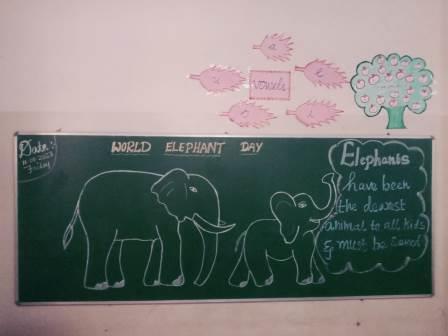 a
e
i
o
u
Vowels
Date:
11-08-2023
Friday
WORLD ELEPHANT DAY
Elephants
have been
the dearest
animal to all kids
& must be saved